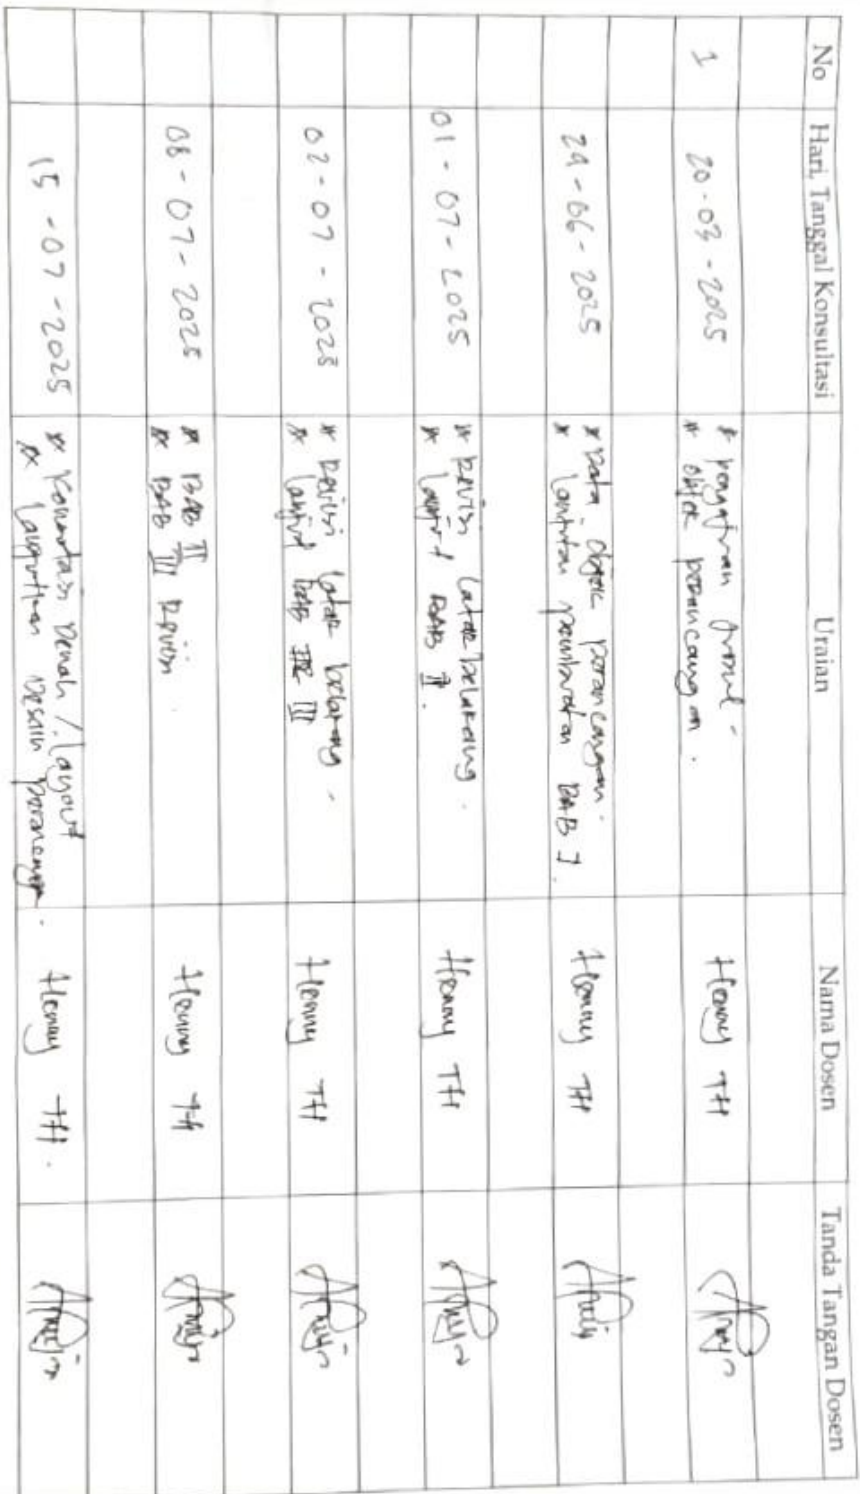 No Hari, Tanggal Konsultasi Uraian Nama Dosen Tanda Tangan Dosen
1 20-03-2025 * pengajuan
* objek perancangan. Henny TH
24-06-2025 * Data objek perancangan.
* lanjutan pembuatan BAB I. Henny TH
01-07-2025 * Revisi latar belakang.
* lanjut BAB II. Henny TH
02-07-2025 * Revisi latar belakang.
* lanjut BAB III Henny TH
08-07-2025 * BAB II
* BAB III Revisi. Henny TH
15-07-2025 * Konsultasi Denah / Layout
* Lanjutkan Desain perancangan. Henny TH.